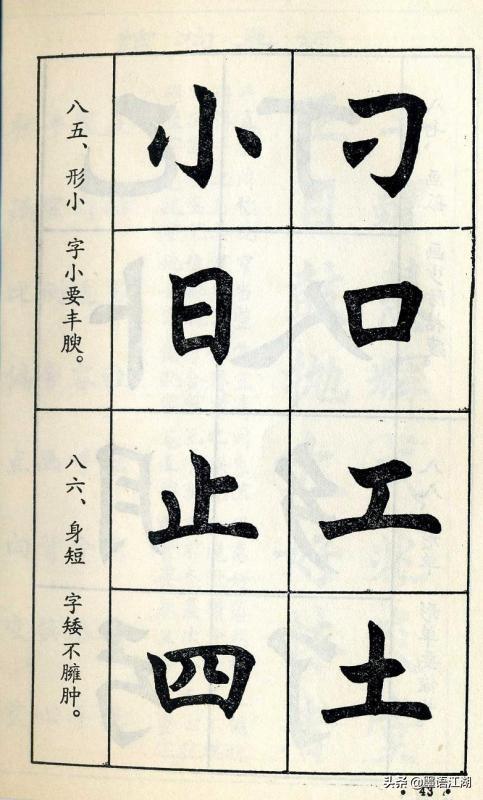 刁口
小日
八五、形小 字小要丰腴。
工土
止四
八六、身短 字矮不臃肿。
· 43 ·
头条 @墨语江湖